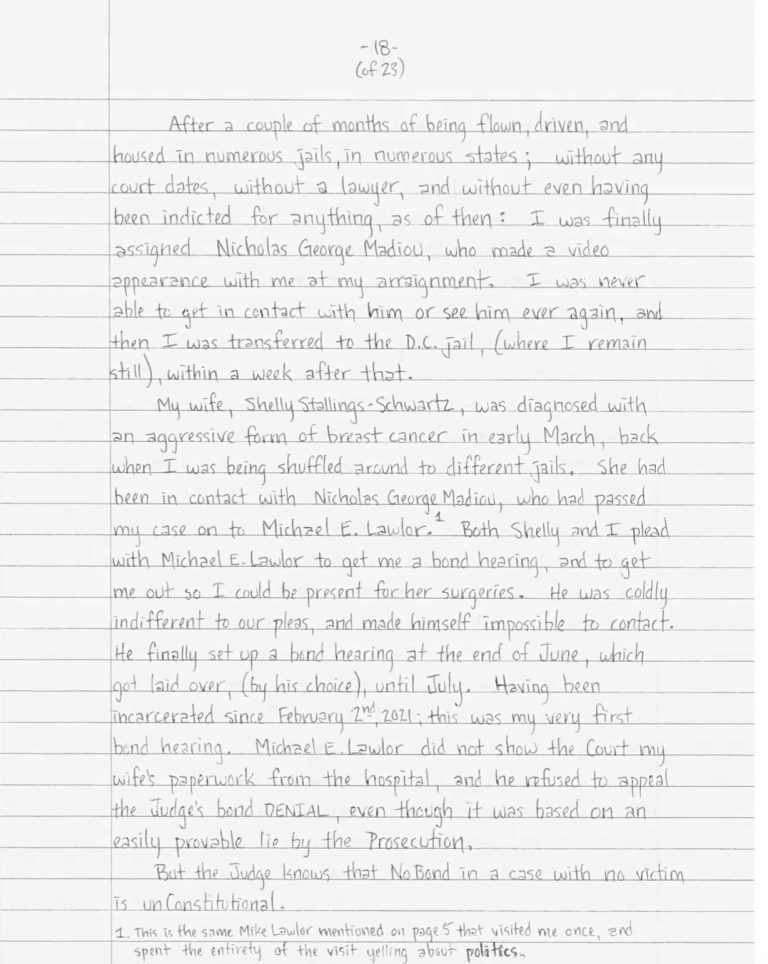 -18-
(of 23)
After a couple of months of being flown, driven, and
housed in numerous jails, in numerous states; without any
court dates, without a lawyer, and without even having
been indicted for anything, as of then: I was finally
assigned Nicholas George Madiou, who made a video
appearance with me at my arraignment. I was never
able to get in contact with him or see him ever again, and
then I was transferred to the D.C. jail, (where I remain
still), within a week after that.
My wife, Shelly Stallings-Schwartz, was diagnosed with
an aggressive form of breast cancer in early March, back
when I was being shuffled around to different jails. She had
been in contact with Nicholas George Madiou, who had passed
my case on to Michael E. Lawlor.¹ Both Shelly and I plead
with Michael E. Lawlor to get me a bond hearing, and to get
me out so I could be present for her surgeries. He was coldly
indifferent to our pleas, and made himself impossible to contact.
He finally set up a bond hearing at the end of June, which
got laid over, (by his choice), until July. Having been
incarcerated since February 2nd, 2021; this was my very first
bond hearing. Michael E. Lawlor did not show the Court my
wife's paperwork from the hospital, and he refused to appeal
the Judge's bond DENIAL, even though it was based on an
easily provable lie by the Prosecution.
But the Judge knows that No Bond in a case with no victim
is unConstitutional.
1. This is the same Mike Lawlor mentioned on page 5 that visited me once, and
spent the entirety of the visit yelling about politics.